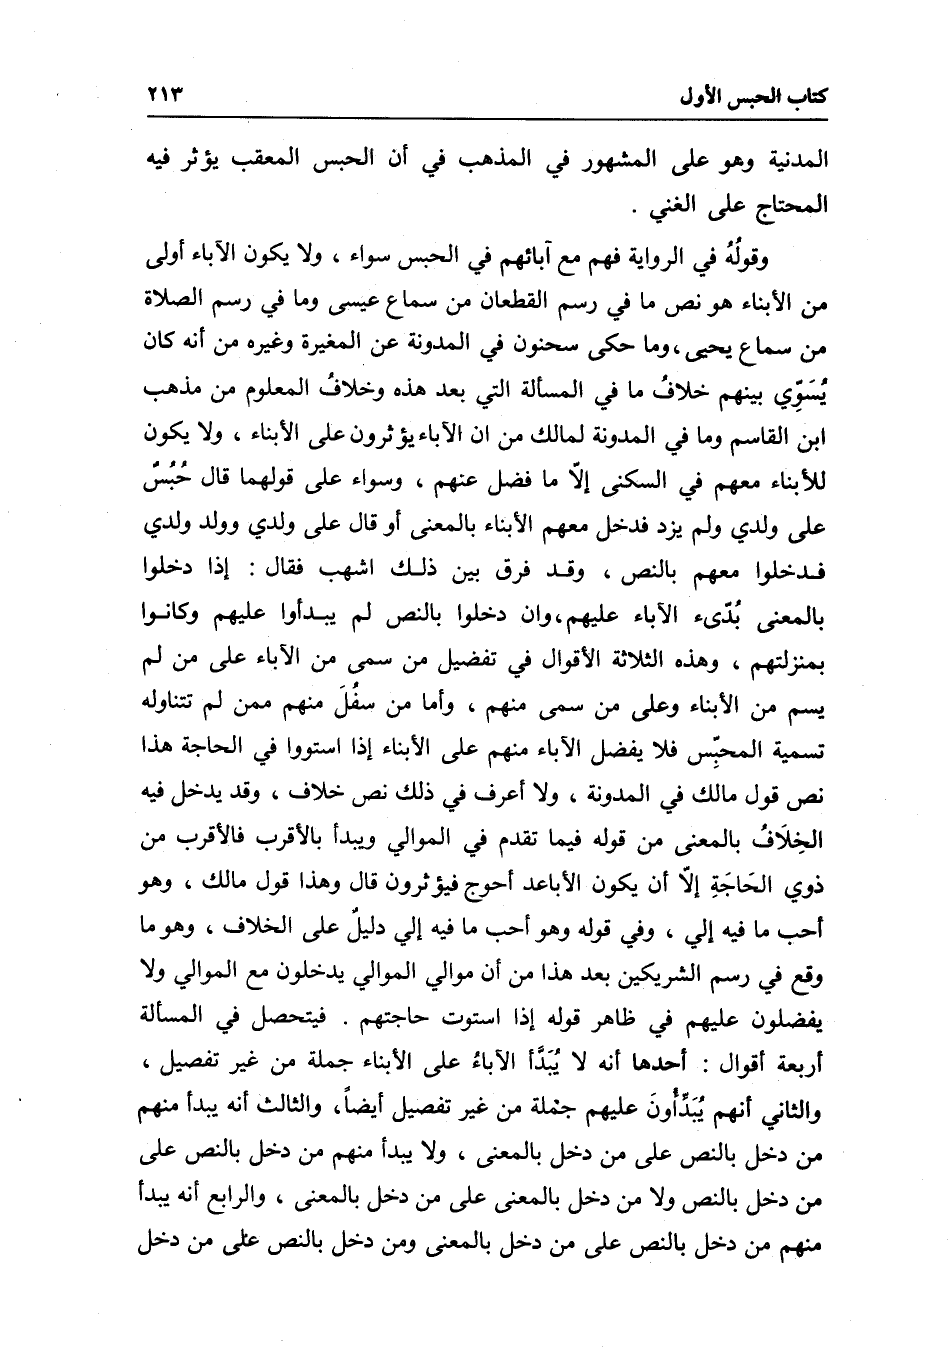 كتاب الحبس الأول ٢١٣
المدنية وهو على المشهور في المذهب في أن الحبس المعقب يؤثر فيه
المحتاج على الغني .
وقولُهُ في الرواية فهم مع آبائهم في الحبس سواء ، ولا يكون الآباء أولى
من الأبناء هو نص ما في رسم القطعان من سماع عيسى وما في رسم الصلاة
من سماع يحيى،وما حكى سحنون في المدونة عن المغيرة وغيره من أنه كان
يُسَوِّي بينهم خلافُ ما في المسألة التي بعد هذه وخلافُ المعلوم من مذهب
ابن القاسم وما في المدونة لمالك من ان الآباء يؤثرون على الأبناء ، ولا يكون
للأبناء معهم في السكنى إلّا ما فضل عنهم ، وسواء على قولهما قال حُبُسٌ
على ولدي ولم يزد فدخل معهم الأبناء بالمعنى أو قال على ولدي وولد ولدي
فـدخلوا معهم بالنص ، وقـد فرق بين ذلـك اشهب فقال : إذا دخلوا
بالمعنى بُدّىء الآباء عليهم،وان دخلوا بالنص لم يبـدأوا عليهم وكانـوا
بمنزلتهم ، وهذه الثلاثة الأقوال في تفضيل من سمى من الآباء على من لم
يسم من الأبناء وعلى من سمى منهم ، وأما من سفُلَ منهم ممن لم تتناوله
تسمية المحبِّس فلا يفضل الآباء منهم على الأبناء إذا استووا في الحاجة هذا
نص قول مالك في المدونة ، ولا أعرف في ذلك نص خلاف ، وقد يدخل فيه
الخِلَافُ بالمعنى من قوله فيما تقدم في الموالي ويبدأ بالأقرب فالأقرب من
ذوي الحَاجَةِ إلّا أن يكون الأباعد أحوج فيؤثرون قال وهذا قول مالك ، وهو
أحب ما فيه إلي ، وفي قوله وهو أحب ما فيه إلي دليلٌ على الخلاف ، وهو ما
وقع في رسم الشريكين بعد هذا من أن موالي الموالي يدخلون مع الموالي ولا
يفضلون عليهم في ظاهر قوله إذا استوت حاجتهم . فيتحصل في المسألة
أربعة أقوال : أحدها أنه لا يُبَدَّأ الآباءُ على الأبناء جملة من غير تفصيل ،
والثاني أنهم يُبَدَّأُونَ عليهم جمْلة من غير تفصيل أيضاً، والثالث أنه يبدأ منهم
من دخل بالنص على من دخل بالمعنى ، ولا يبدأ منهم من دخل بالنص على
من دخل بالنص ولا من دخل بالمعنى على من دخل بالمعنى ، والرابع أنه يبدأ
منهم من دخل بالنص على من دخل بالمعنى ومن دخل بالنص على من دخل